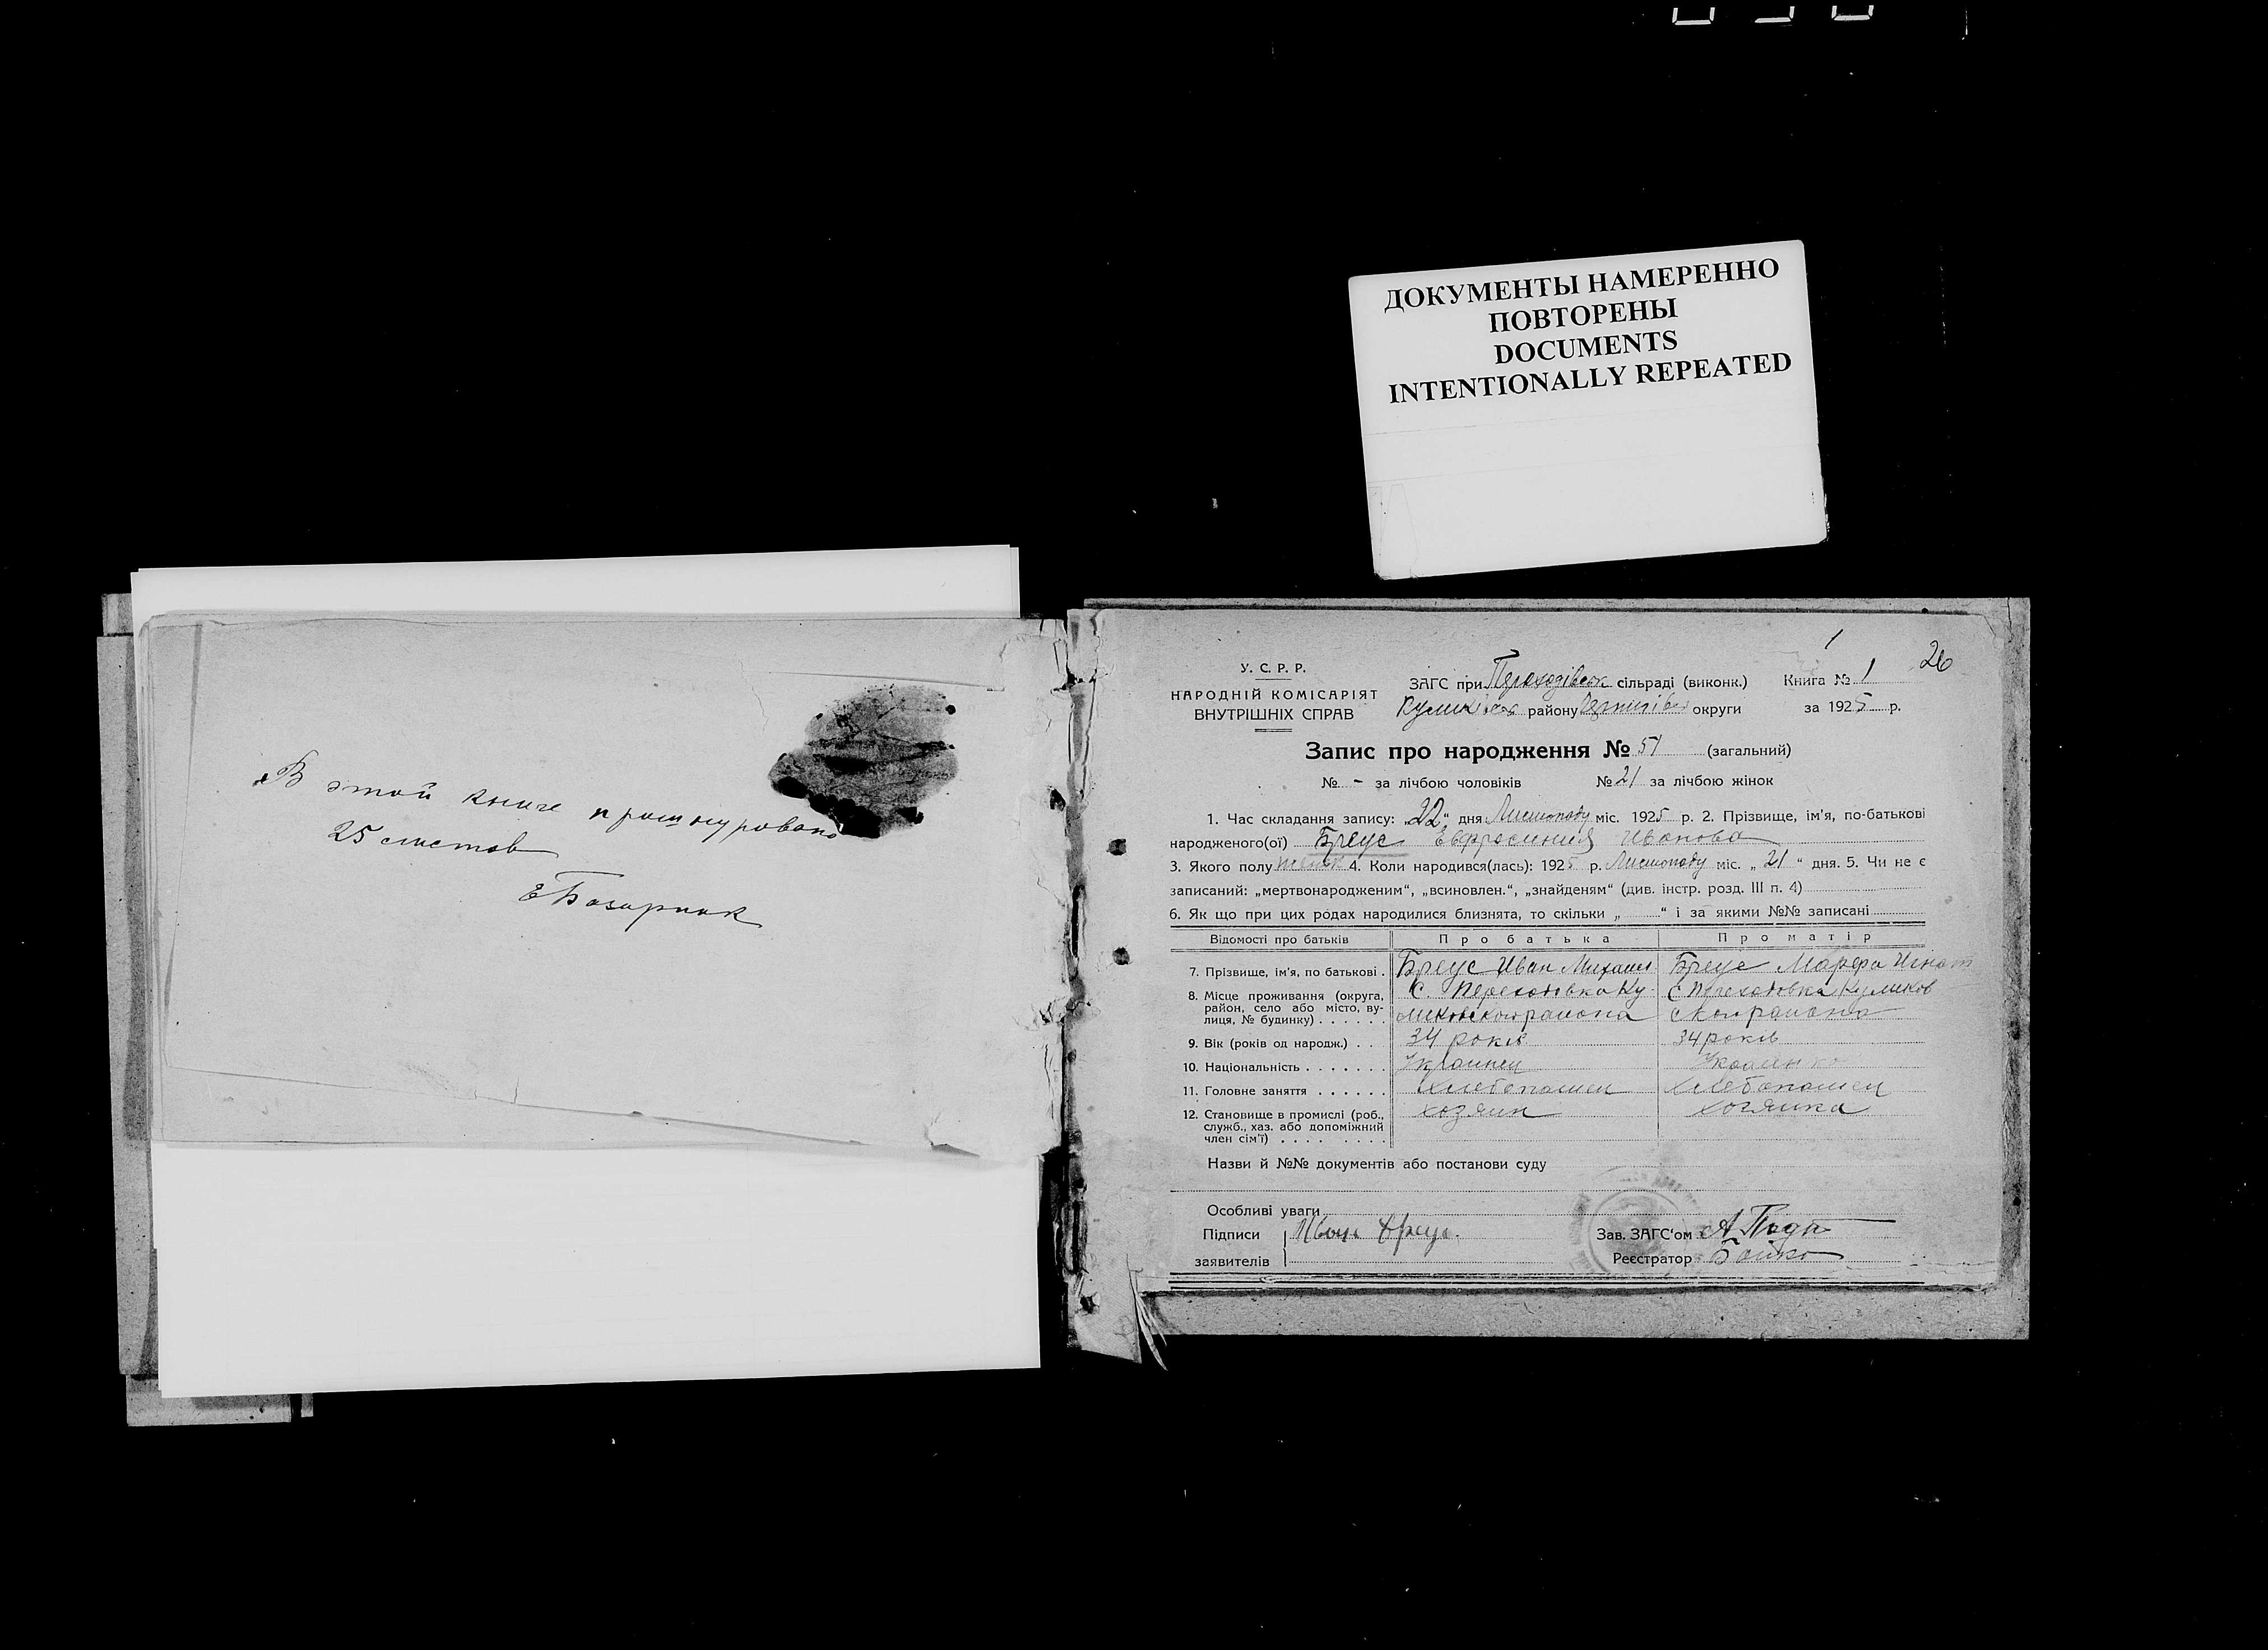 ДОКУМЕНТЫ НАМЕРЕННО
ПОВТОРЕНЫ
DOCUMENTS
INTENTIONALLY REPEATED
В этой книге прошнуровано
25 листов
1
26
У. С. Р. Р.
НАРОДНІЙ КОМІСАРІЯТ
ВНУТРІШНІХ СПРАВ
ЗАГС при Переходівськ сільраді (виконк.)
району округи
Книга № 1
за 1925 р.
Запис про народження № 51 (загальний)
№ - за лічбою чоловіків № 21 за лічбою жінок
1. Час складання запису: „22“ дня Листопаду міс. 1925 р. 2. Прізвище, ім'я, по-батькові
народженого(ої) Бреус Евфросиния Иванова
3. Якого полу женск 4. Коли народився(лась): 1925 р. Листопаду міс. „21“ дня. 5. Чи не є
записаний: „мертвонародженим“, „всиновлен.“, „знайденям“ (див. інстр. розд. III п. 4)
6. Як що при цих родах народилися близнята, то скільки „ “ і за якими №№ записані
Відомості про батьків Про батька Про матір
7. Прізвище, ім'я, по батькові . Бреус Иван Михаил Бреус Марфа Игнат
8. Місце проживання (округа, район, село або місто, вулиця, № будинку) . . . . . . С. Переходовка Ку- С Переходовка Куликов
ликовского района ского района
9. Вік (років од народж.) . . 34 років 34 років
10. Національність . . . . . . . Украинец Украинка
11. Головне заняття . . . . . . Хлебопашец Хлебопашец
12. Становище в промислі (роб., служб., хаз. або допоміжний член сім'ї) . . . . . . . . хозяин хозяйка
Назви й №№ документів або постанови суду
Особливі уваги
Підписи Иван Бреус.
заявителів
Зав. ЗАГС'ом
Реєстратор Бойко